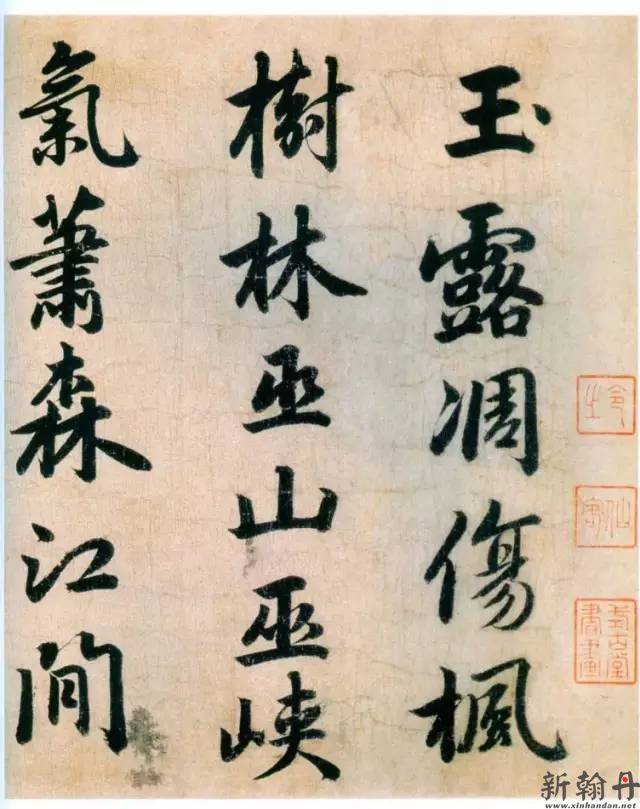 玉露凋傷楓
樹林巫山巫峡
氣蕭森江間
式古堂書畫
新翰丹
www.xinhandan.net